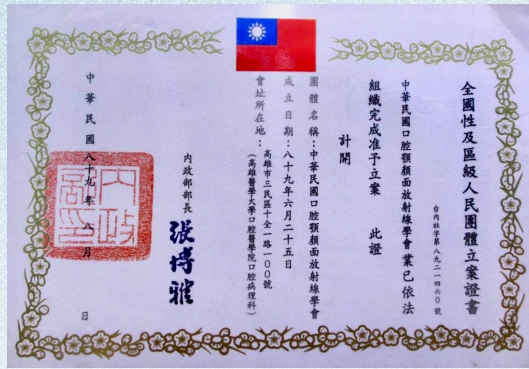 全國性及區級人民團體立案證書
台內社字第八九二一四六０號
中華民國口腔顎顏面放射線學會業已依法
組織完成准予立案　此證
計開
團體名稱：中華民國口腔顎顏面放射線學會
成立日期：八十九年六月二十五日
會址所在地：高雄市三民區十全一路一００號
（高雄醫學大學口腔醫學院口腔病理科）
內政部部長 張博雅
中華民國八十九年八月　日
內政部印